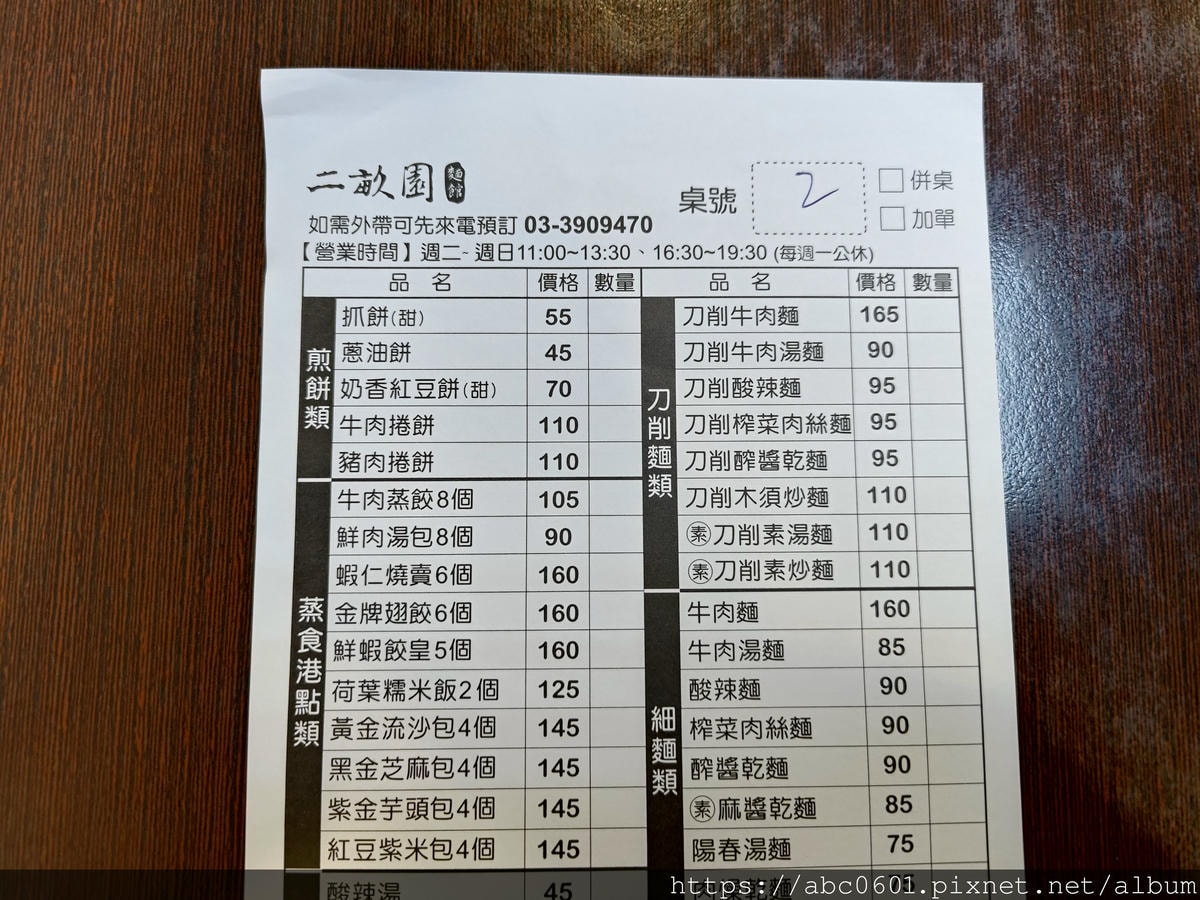 二畝園 麵館
桌號 2 併桌
加單
如需外帶可先來電預訂 03-3909470
【營業時間】週二~週日11:00~13:30、16:30~19:30 (每週一公休)
品名 價格 數量 品名 價格 數量
煎餅類
抓餅(甜) 55
蔥油餅 45
奶香紅豆餅(甜) 70
牛肉捲餅 110
豬肉捲餅 110
蒸食港點類
牛肉蒸餃8個 105
鮮肉湯包8個 90
蝦仁燒賣6個 160
金牌翅餃6個 160
鮮蝦餃皇5個 160
荷葉糯米飯2個 125
黃金流沙包4個 145
黑金芝麻包4個 145
紫金芋頭包4個 145
紅豆紫米包4個 145
酸辣湯 45
刀削麵類
刀削牛肉麵 165
刀削牛肉湯麵 90
刀削酸辣麵 95
刀削榨菜肉絲麵 95
刀削醡醬乾麵 95
刀削木須炒麵 110
素刀削素湯麵 110
素刀削素炒麵 110
細麵類
牛肉麵 160
牛肉湯麵 85
酸辣麵 90
榨菜肉絲麵 90
醡醬乾麵 90
素麻醬乾麵 85
陽春湯麵 75
肉燥乾麵 75
https://abc0601.pixnet.net/album